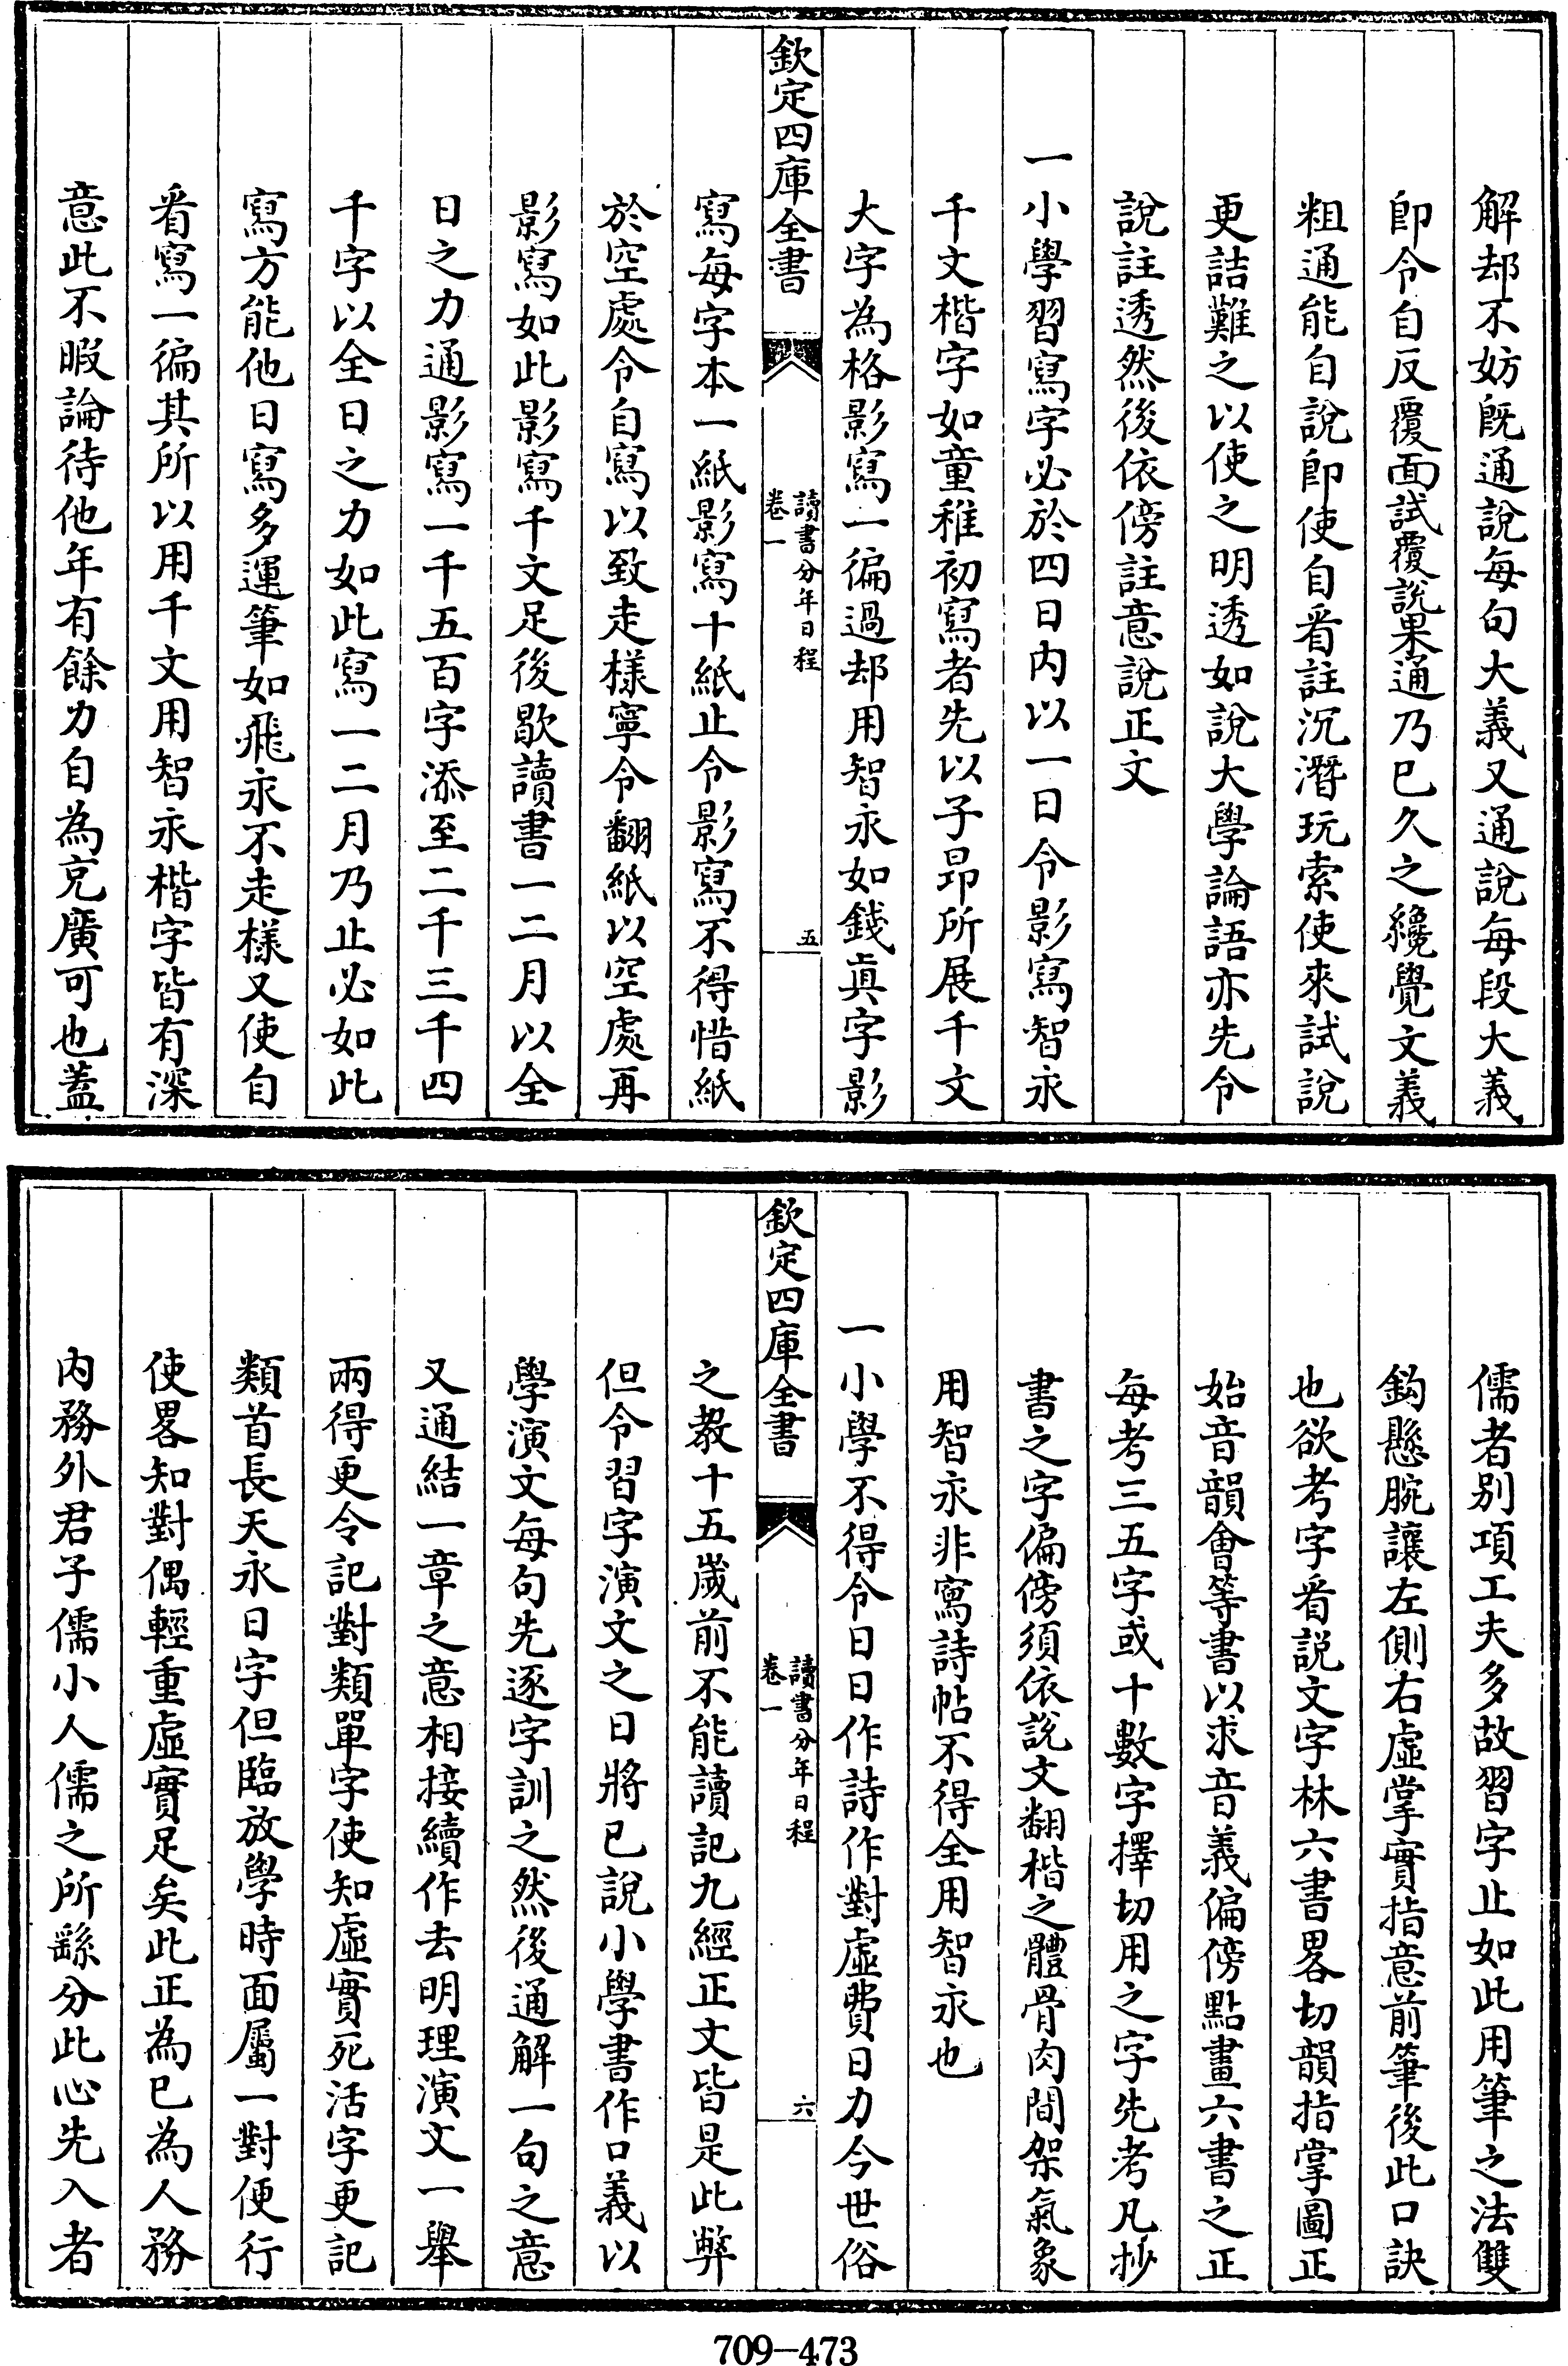 解却不妨既通說每句大義又通說每段大義
即令自反覆面試覆說果通乃已久之纔覺文義
粗通能自說即使自看註沉潛玩索使來試說
更詰難之以使之明透如說大學論語亦先令
說註透然後依傍註意說正文
一小學習寫字必於四日內以一日令影寫智永
千文楷字如童稚初寫者先以子昂所展千文
大字為格影寫一徧過却用智永如錢真字影
欽定四庫全書
讀書分年日程
卷一
五
寫每字本一紙影寫十紙止令影寫不得惜紙
於空處令自寫以致走樣寧令翻紙以空處再
影寫如此影寫千文足後歇讀書一二月以全
日之力通影寫一千五百字添至二千三千四
千字以全日之力如此寫一二月乃止必如此
寫方能他日寫多運筆如飛永不走樣又使自
看寫一徧其所以用千文用智永楷字皆有深
意此不暇論待他年有餘力自為充廣可也蓋
儒者別項工夫多故習字止如此用筆之法雙
鈎懸腕讓左側右虛掌實指意前筆後此口訣
也欲考字看說文字林六書畧切韻指掌圖正
始音韻會等書以求音義偏傍點畫六書之正
每考三五字或十數字擇切用之字先考凡抄
書之字偏傍須依說文翻楷之體骨肉間架氣象
用智永非寫詩帖不得全用智永也
一小學不得令日日作詩作對虛費日力今世俗
欽定四庫全書
讀書分年日程
卷一
六
之教十五歲前不能讀記九經正文皆是此弊
但令習字演文之日將已說小學書作口義以
學演文每句先逐字訓之然後通解一句之意
又通結一章之意相接續作去明理演文一舉
兩得更令記對類單字使知虛實死活字更記
類首長天永日字但臨放學時面屬一對便行
使畧知對偶輕重虛實足矣此正為已為人務
內務外君子儒小人儒之所繇分此心先入者
709-473